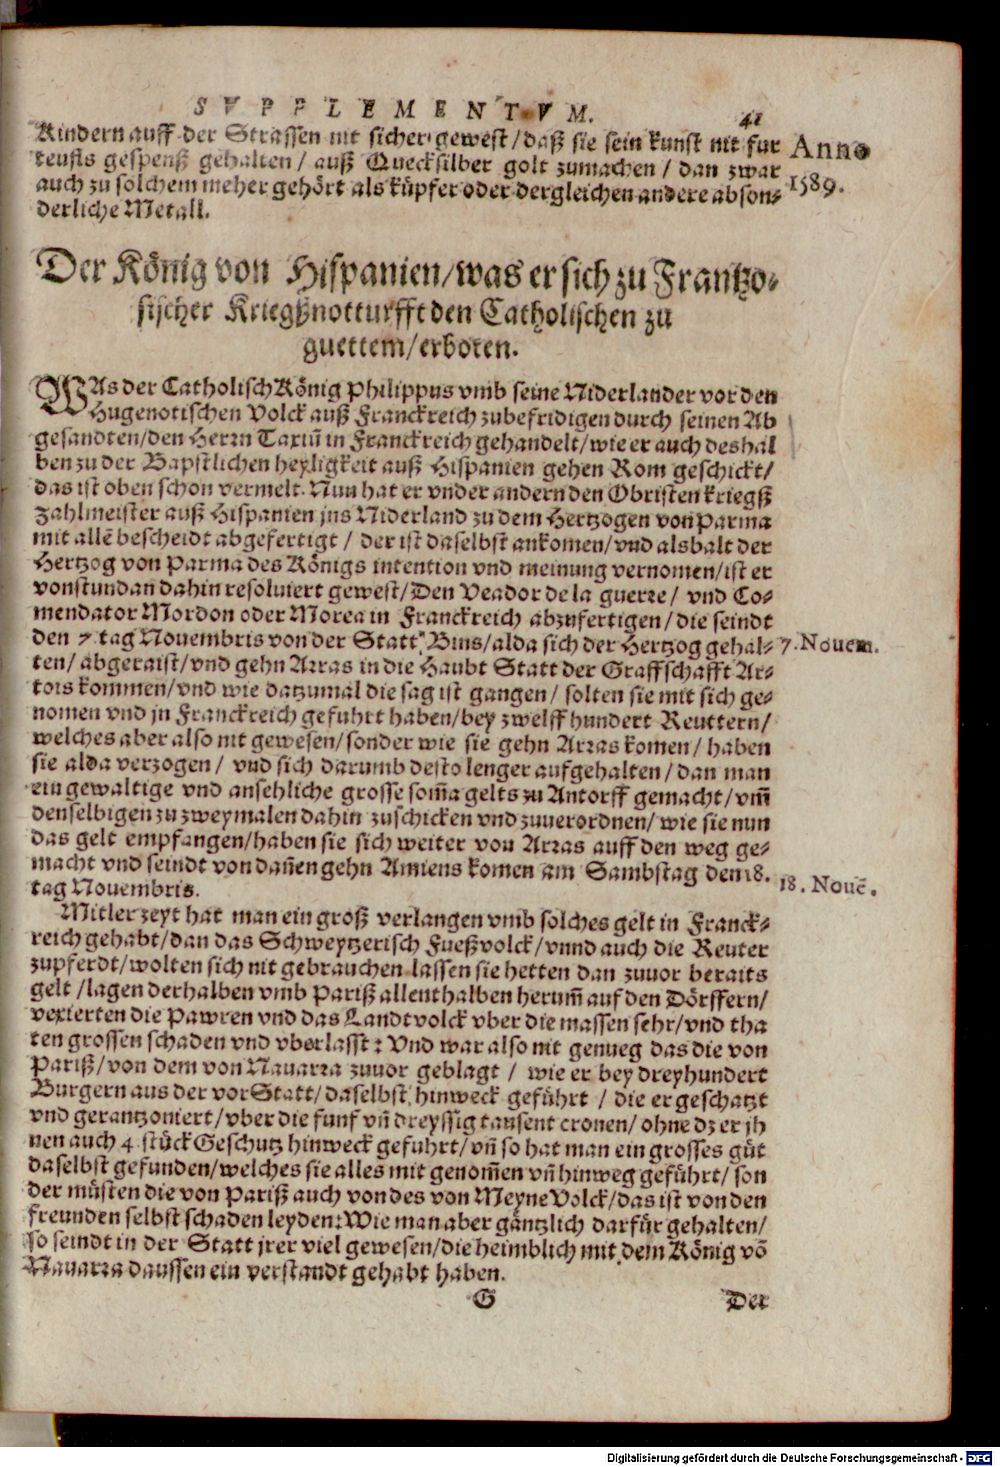 SVPPLEMENTVM.
41
Kindern auff der Strassen nit sicher gewest/daß sie sein kunst nit fur
teufls gespenß gehalten/ auß Quecksilber golt zumachen/ dan zwar
auch zu solchem meher gehört als küpfer oder dergleichen andere abson-
derliche Metall.
Anno
1589.
Der König von Hispanien/was er sich zu Frantzo-
sischer Kriegßnotturfft den Catholischen zu
guettem/erboten.
WAs der Catholisch König Philippus vmb seine Niderlander vor den
Hugenotischen Volck auß Franckreich zubefridigen durch seinen Ab
gesandten/den Herrn Taxiū in Franckreich gehandelt/wie er auch deshal
ben zu der Bapstlichen heyligkeit auß Hispanien gehen Rom geschickt/
das ist oben schon vermelt. Nun hat er vnder andern den Obristen kriegß
zahlmeister auß Hispanien jns Niderland zu dem Hertzogen von Parma
mit allē bescheidt abgefertigt/ der ist daselbst ankomen/vnd alsbalt der
Hertzog von Parma des Königs intention vnd meinung vernomen/ist er
vonstundan dahin resoluiert gewest/Den Veador de la guerre/ vnd Co-
mendator Mordon oder Morea in Franckreich abzufertigen/die seindt
den 7 tag Nouembris von der Statt Bins/alda sich der Hertzog gehal-
7. Nouem.
ten/abgeraist/vnd gehn Arras in die Haubt Statt der Graffschafft Ar-
tois kommen/vnd wie datzumal die sag ist gangen/ solten sie mit sich ge-
nomen vnd jn Franckreich gefuhrt haben/bey zwelff hundert Reuttern/
welches aber also nit gewesen/sonder wie sie gehn Arras komen/haben
sie alda verzogen/ vnd sich darumb desto lenger aufgehalten/dan man
ein gewaltige vnd ansehliche grosse som̄a gelts zu Antorff gemacht/vm̄
denselbigen zu zweymalen dahin zuschicken vnd zuuerordnen/wie sie nun
das gelt empfangen/haben sie sich weiter von Arras auff den weg ge-
macht vnd seindt von dañen gehn Amiens komen am Sambstag den 18.
18. Nouē.
tag Nouembris.
Mitler zeyt hat man ein groß verlangen vmb solches gelt in Franck-
reich gehabt/dan das Schweytzerisch Fueßvolck/vnnd auch die Reuter
zupferdt/wolten sich nit gebrauchen lassen sie hetten dan zuuor beraits
gelt/lagen derhalben vmb Pariß allenthalben herum̄ auf den Dörffern/
vexierten die Pawren vnd das Landtvolck vber die massen sehr/vnd tha
ten grossen schaden vnd vberlasst: Vnd war also nit genueg das die von
Pariß/von dem von Nauarra zuuor geblagt/ wie er bey dreyhundert
Burgern aus der vorStatt/daselbst hinweck geführt/ die er geschatzt
vnd gerantzoniert/vber die funf vñ dreyssig tausent cronen/ohne dz er jh
nen auch 4 stück Geschutz hinweck gefuhrt/vñ so hat man ein grosses güt
daselbst gefunden/welches sie alles mit genom̄en vñ hinweg geführt/son
der müsten die von Pariß auch von des von Meyne Volck/das ist von den
freunden selbst schaden leyden: Wie man aber gäntzlich darfür gehalten/
so seindt in der Statt jrer viel gewesen/die heimblich mit dem König vō
Nauarra daussen ein verstandt gehabt haben.
G
Der
Digitalisierung gefördert durch die Deutsche Forschungsgemeinschaft - DFG